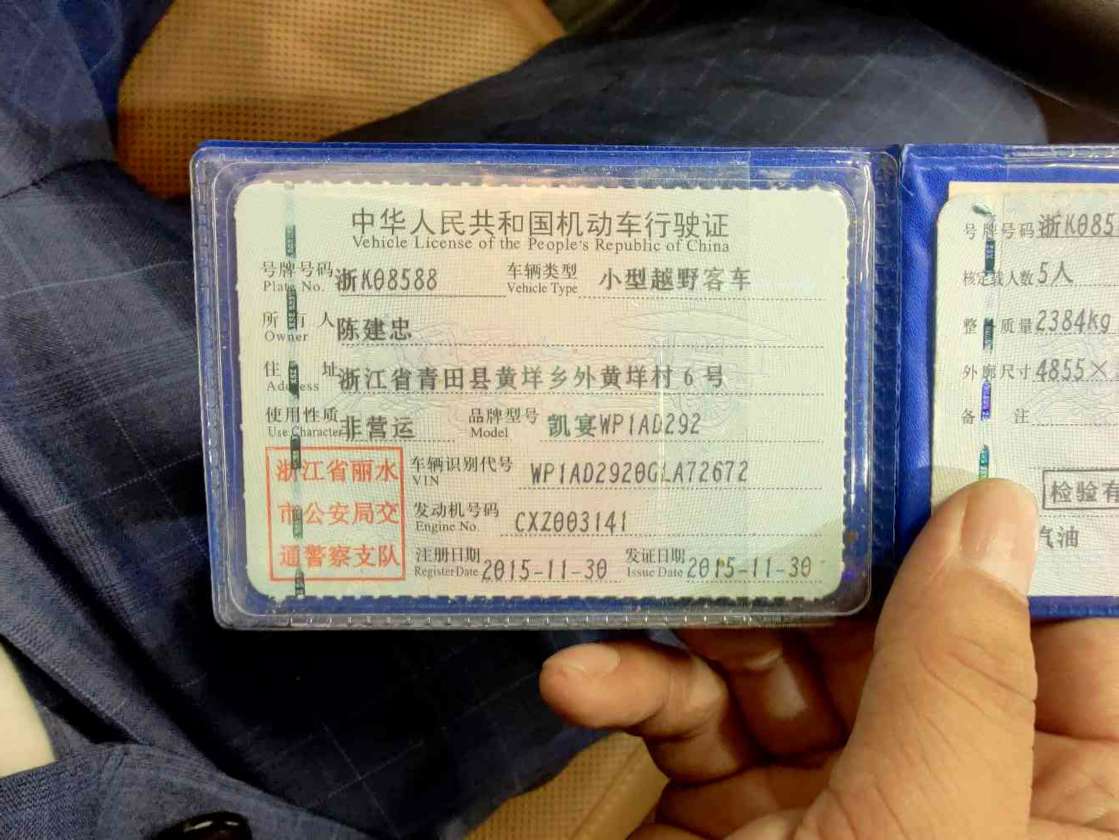 中华人民共和国机动车行驶证
Vehicle License of the People's Republic of China
号牌号码 浙K08588 车辆类型 小型越野客车
Plate No. Vehicle Type
所有人 陈建忠
Owner
住址 浙江省青田县黄垟乡外黄垟村6号
Address
使用性质 非营运 品牌型号 凯宴WP1AD292
Use Character Model
浙江省丽水
市公安局交
通警察支队
车辆识别代号 WP1AD2920GLA72672
VIN
发动机号码 CXZ003141
Engine No.
注册日期 2015-11-30 发证日期 2015-11-30
Register Date Issue Date
号牌号码 浙K085
核定载人数 5人
整 质量 2384kg
外廓尺寸 4855×
备注
检验有
汽油